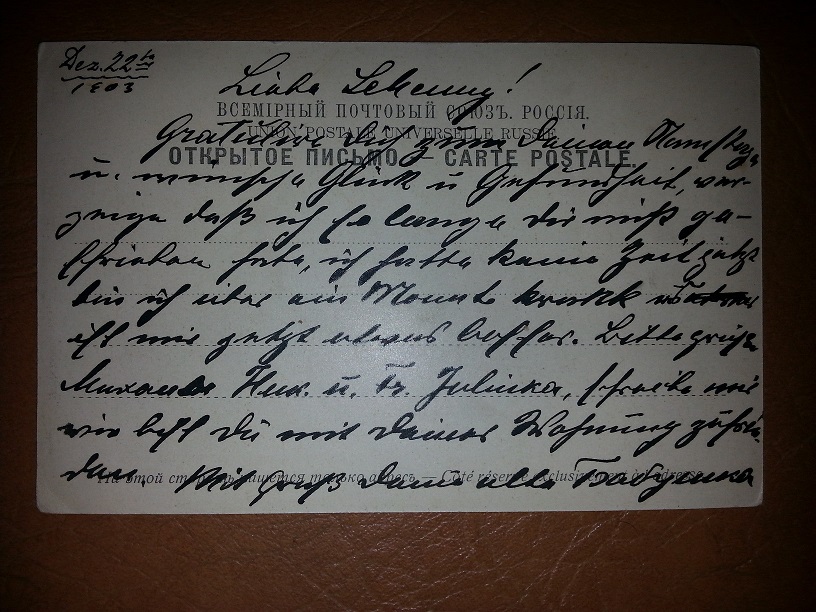 Dez. 22ten
1903
Liebe !
ВСЕМІРНЫЙ ПОЧТОВЫЙ СОЮЗЪ. РОССІЯ.
UNION POSTALE UNIVERSELLE RUSSIE.
Gratulire Dig zum Deinem
ОТКРЫТОЕ ПИСЬМО — CARTE POSTALE.
u. wünsche Glück u Gesundheit, ver-
zeige daß ich so lange Dir nicht ge-
schrieben habe, ich hatte keine Zeit jetzt
bin ich über ein Monat krank
ist mir jetzt etwas besser. Bitte grüße
u. Fr. Julinka, schreibe mir
wie bist Du mit Deiner Wohnung zufrie
den. Mit Gruß Deine alte
На этой сторонѣ пишется только адресъ. — Côté réservé exclusivement à l'adresse.